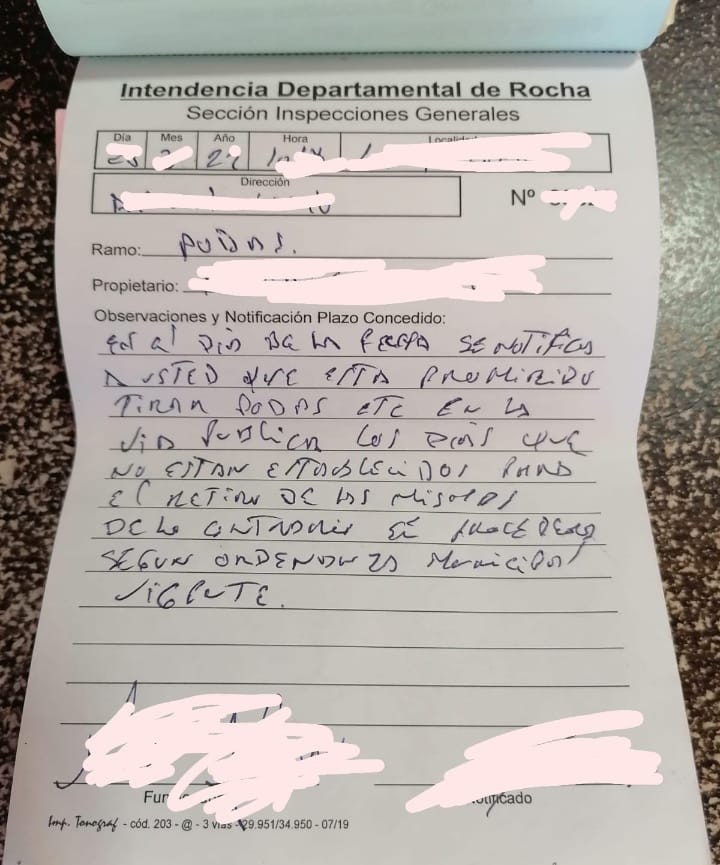 Intendencia Departamental de Rocha
Sección Inspecciones Generales
Día Mes Año Hora
22
Dirección
Nº
Ramo: PODAS.
Propietario:
Observaciones y Notificación Plazo Concedido:
EN al DIA DE LA FECHA SE NOTIFICA
A USTED QUE ESTA PROHIBIDO
TIRAR PODAS ETC EN LA
VIA PUBLICA LOS DIAS QUE
NO ESTAN ESTABLECIDOS PARA
EL RETIRO DE LOS MISMOS
DE LO CONTRARIO SE PROCEDERA
SEGUN ORDENANZA MUNICIPAL
VIGENTE.
Imp. Tonograf - cód. 203 - @ - 3 vías - 29.951/34.950 - 07/19